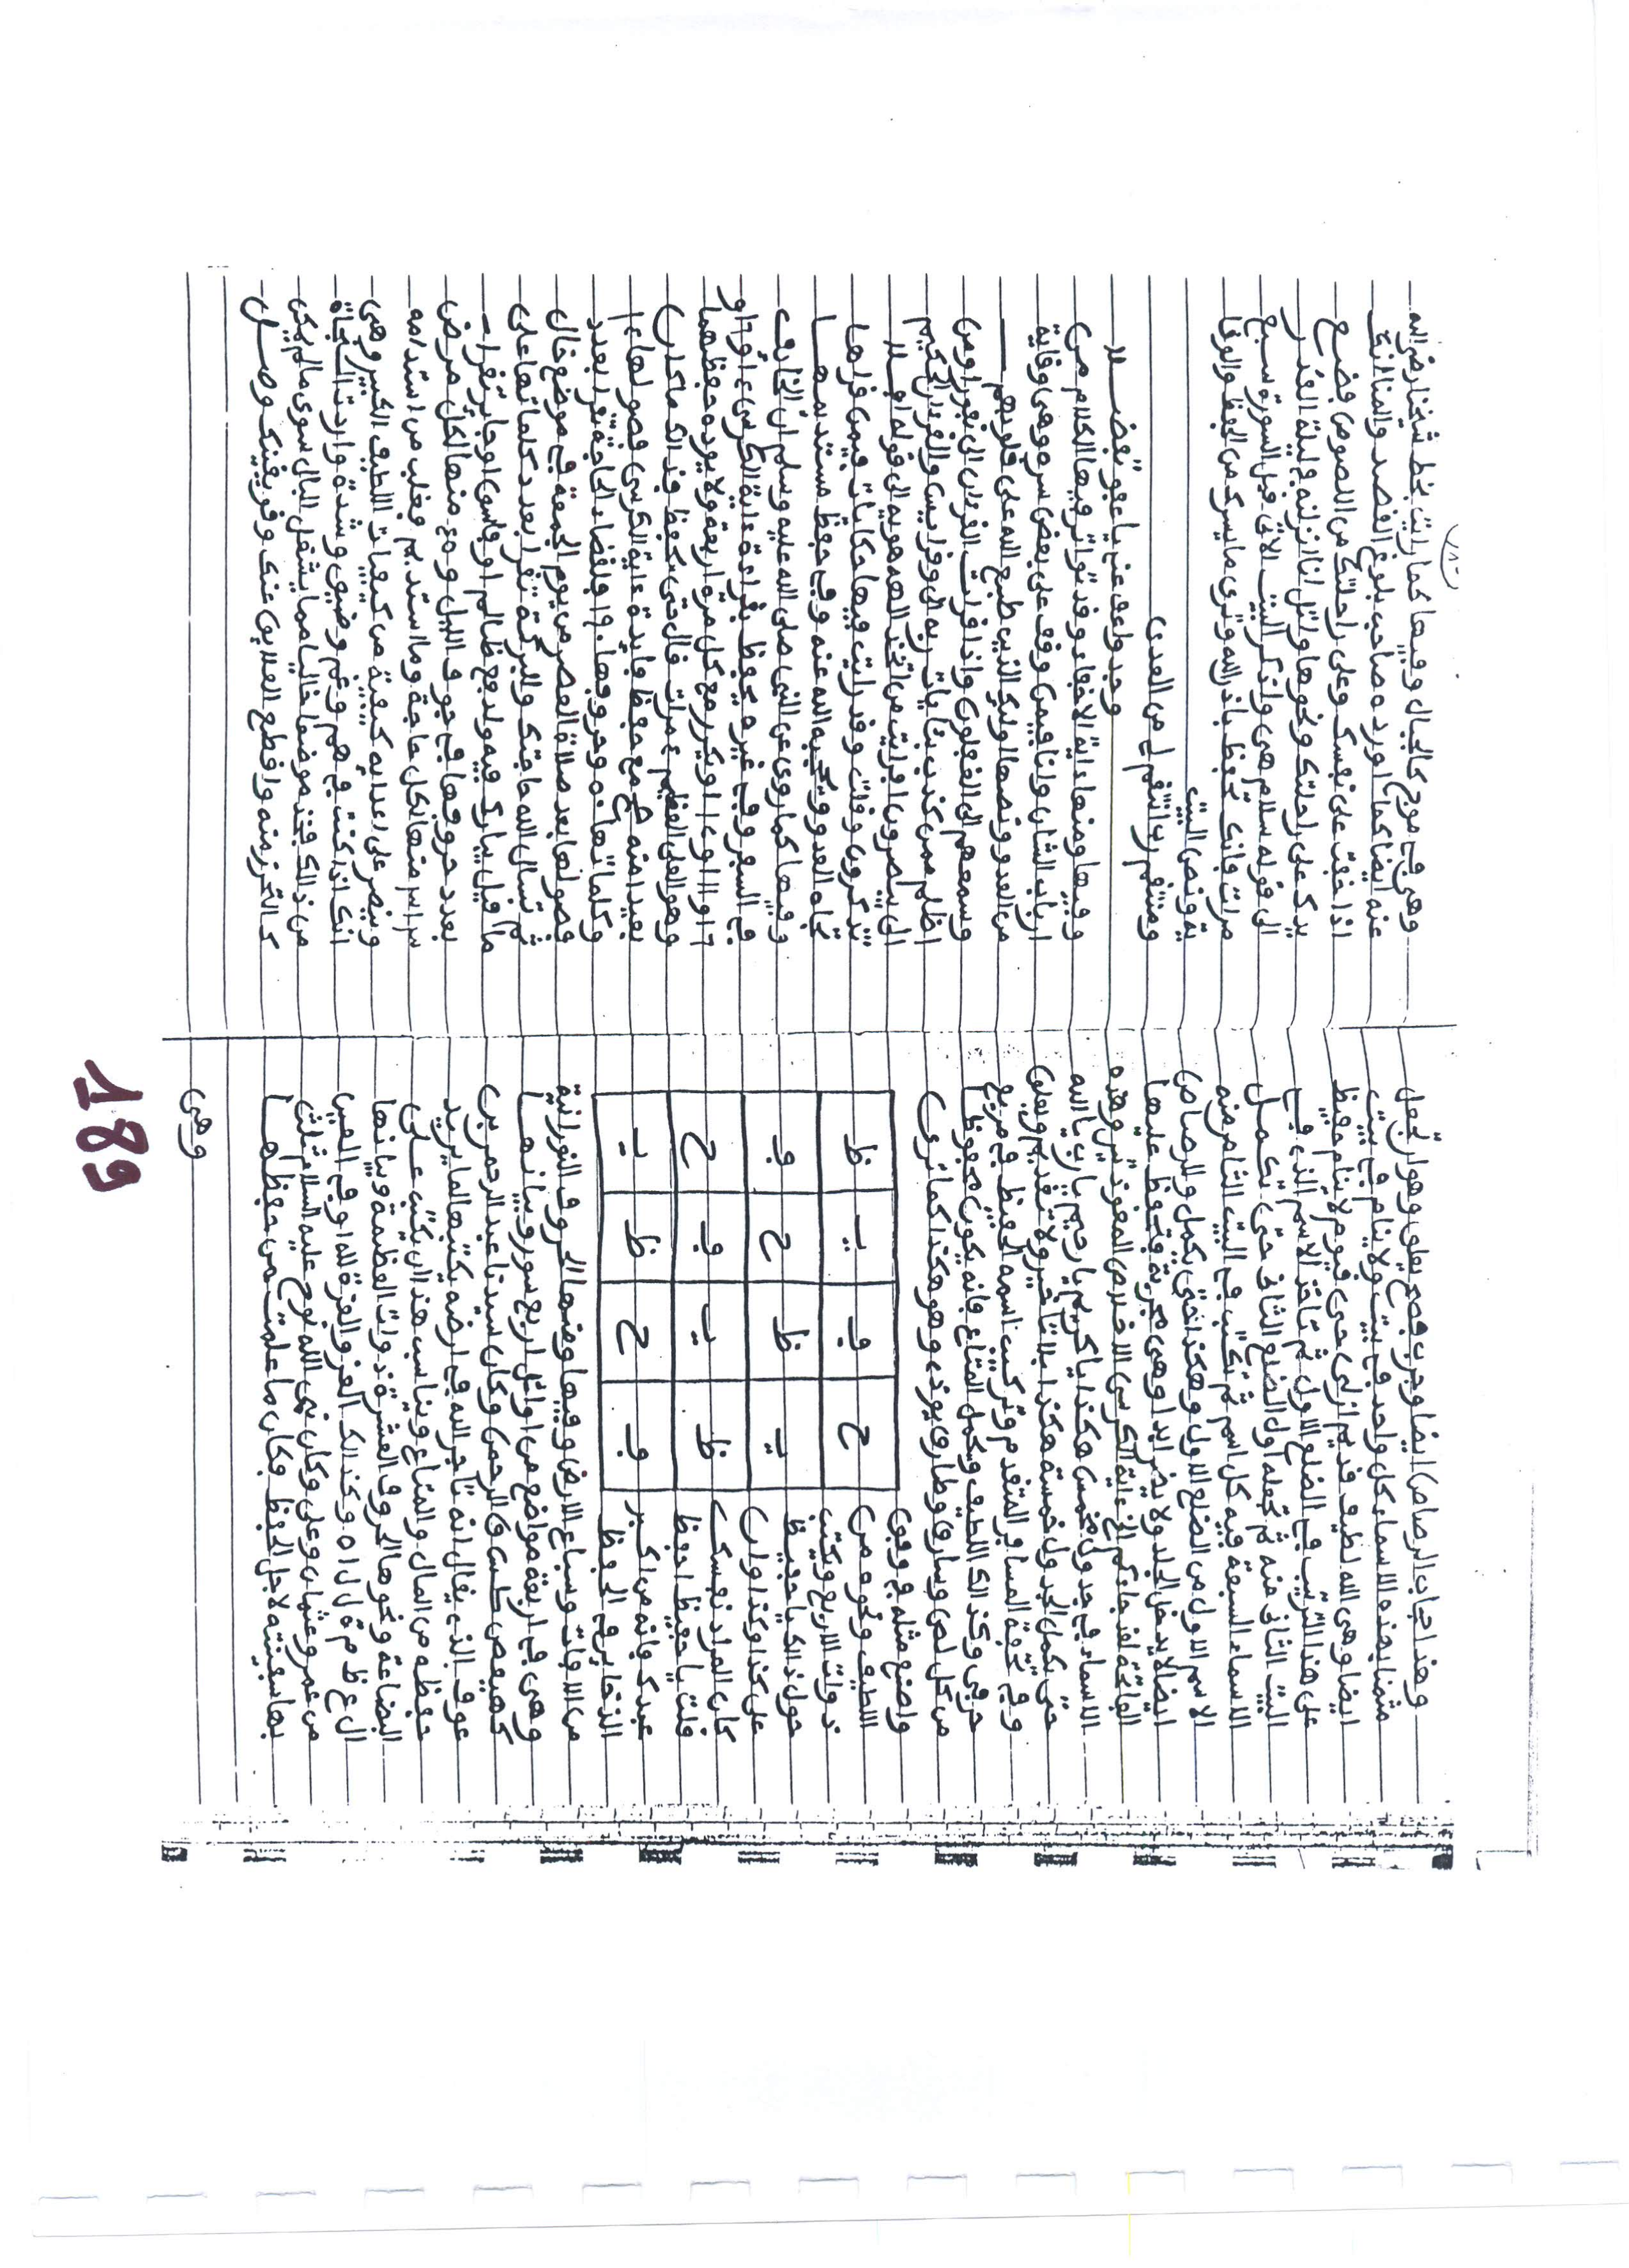 وهذا حجاب الرصاص ايضا وجرب فصح
مثنا بهذه الاسماء كل واحد في بيت ولا ينام في بيت
ايضا وهي الله لطيف قديم ازلي حي قيوم لا ينام
على هذا الترتيب في الضلع الاول ثم تاخذ الاسم الذي في
البيت الثاني منه ثم تجعله اول الضلع الثاني حتى تكمل
الاسماء السبعة فيه كل اسم ثم تكتب في البيت الثامن منه
الاسم الاول من الضلع الاول وهكذا حتى يكمل والرصاص
ايضا لا يدخل الجلد ولا يضر ابدا وهي مجربة
الفاتحة لقد جاءكم الخ ءاية الكرسي الاخلاص المعوذتين وهذه
الاسماء في جدول مخمس هكذا يا كريم يا رحيم يا رب يا الله
حتى يكمل الجدول خمسة هكذا بلا تاخير ولا تقديم
وفي تحفة المسافر المتقدم وتركيب اسمه الحفيظ في مربع
حرفي وكذلك اللطيف وحمل المتاع فانه يكون محفوظا
من كل لص وسارق وطارق يوذي وهو هكذا كما ترى
واصنع مثله
اللطيف ونحوه من
ذوات الاربع ويكتب
حول ذلك يا حفيظ
على كذا وكذا وان
كان المراد نفسك
قلت يا حفيظ احفظ
عبدك فانه من اكبر
الذخاير في الحفظ
ظ ف ح ي
ي ح ف ظ
ف ظ ي ح
ح ي ظ ف
من الافات وسباع الارض وفيها ومنها الحروف النورانية
وهي في اربعة مواضع من اوائل اربع سور وبيانها
كهيعص طس ق الرحمن وكان سيدنا عبد الرحمن بن
عوف الذي يقال انه تاجر الله في ارضه يكتبها لما يريد
حفظه من المال والمتاع ويناسب هذا ان يكتب على
البضاعة ونحوها الحروف العشرة ذوات العظمة وبيانها
ال ع ظ م ة ل ل ا ه وكذلك العز والعزة لله
من عمر وعثمان وعلي وكان نبي الله نوح عليه السلام
بها سفينته لاجل الحفظ فكان ما علمت من حفظها
وهي
وهي في موج كالجبال وفيها كما رايت بخط شيخنا رضي الله
عنه ايضا كما اورده صاحب بلوغ القصد والمنا انك
اذا خفت على نفسك وعلى راحلتك من اللصوص فضع
يدك على راحلتك ونحوها واتل انا انزلنه في ليلة القدر
الى قوله سلام هي واذكر البيت الاتي قبل السورة سبع
مرات فانك تحفظ باذن الله وترى ما يسرك من الحفظ والوفا
ية ونص البيت
ومنتقم رب انتقم لي من العدى
وجد واعف عني يا عفو تفضلا
وفيها ومنها ءاية الاخفاء وقد تواتر فيها الكلام من
ارباب الشان وانا فيمن وقف على بعض سره وهي وقاية
من العدو ونصها اوليك الذين طبع الله على قلوبهم
وسمعهم الى الغفلون واذا قرات القرءان الى نفورا ومن
اظلم ممن كذب بئايات ربه
الى ينصرون افرايت من اتخذ الهه هويه الى قوله افلا
تذكرون وقلت وقد رايت فيها حكايات فيمن قراها
تجاه العدو ونجيه الله عنه وفي حفظ مستديمها
وفيها كما روي عن النبي صلى الله عليه وسلم ان الخايف
في السفر وفي غيره يحفظ بقراءة ءاية الكرسي
وهو العلي العظيم
بعيد امنه صح مع حفظ فايدة ءاية الكرسي فصولها
وكلماتها نه وحروفها
فصولها بعد صلاة العصر من يوم الجمعة في موضع خال
ثم تسال الله حاجتك والبركة تقرا بعدد كلماتها على
ما قيل يبارك فيه ولدفع ظالم او قاس او جاير تقرا
بعدد حروفها في جوف الليل وهي منها لكل مرض
سر اسرر منها لكل حاجة
وينصر على اعدايه كيفية من كيفيات اللطيف الكبير وهي
انك اذا كنت في هم وغم وضيق وشدة واردت النجاة
من ذلك فخذ موضعا خاليا مما يشغل البال سوى ما لم يكن
كالتحرز منه واقطع العلايق عنك
189